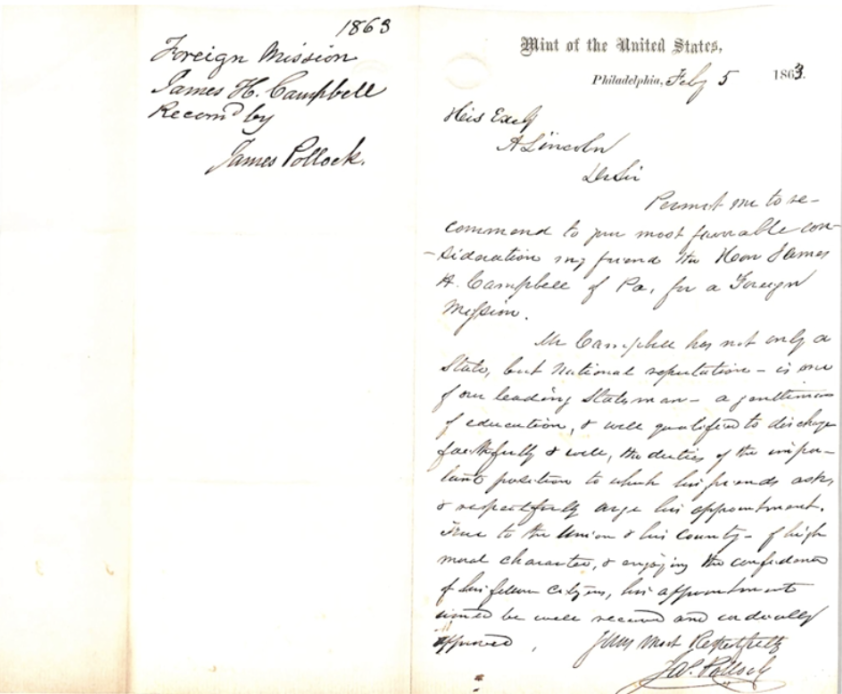 1863
Foreign Mission
James H. Campbell
Recomd by
James Pollock.
Mint of the United States,
Philadelphia, Feby 5 1863.
His Excy
A Lincoln
Dr Sir
Permit me to re-
commend to your most favorable con-
-sideration my friend the Hon James
H. Campbell of Pa, for a Foreign
Mission.
Mr Campbell has not only a
State, but National reputation - is one
of our leading Statsman - a gentleman
of education, & well qualified to discharge
faithfully & well, the duties of the impor-
tant position to which his friends ask,
& respectfully urge his appointment.
True to the Union & his County - of high
moral character, & enjoying the confidence
of his fellow citizens, his appointment
would be well received and cordially
approved. Yours Most Respectfully
Jas. Pollock